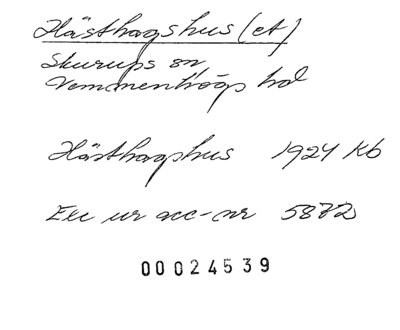 Hästhagshus (et)
Skurups sn
Vemmenhögs hd
Hästhagshus 1924 Kb
Exc ur acc-nr 5872
00024539